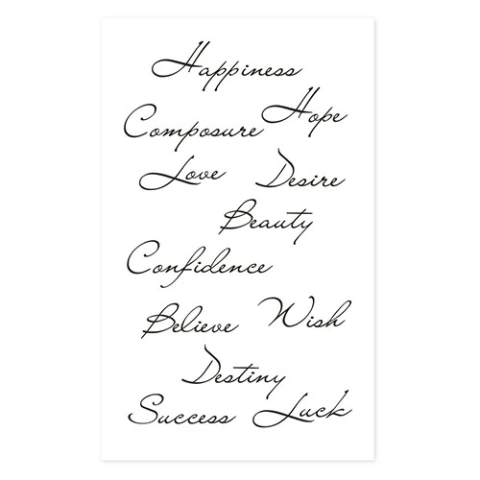 Happiness
Hope
Composure
Love Desire
Beauty
Confidence
Believe Wish
Destiny
Success Luck